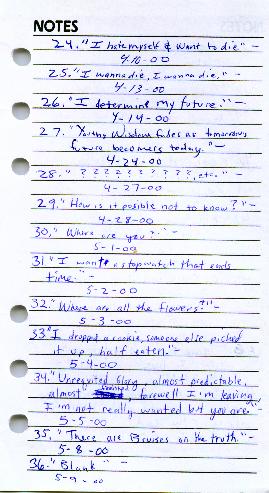 NOTES
24. "I hate myself & want to die" -
4-10-00
25. "I wanna die, I wanna die." -
4-13-00
26. "I determine my future." -
4-14-00
27. "Young Wisdom fades as tomorrows
future becomes today." -
4-24-00
28. " ? ? ? ? ? ? ? ? ? ?, etc." -
4-27-00
29. "How is it posible not to know?" -
4-28-00
30. "Where are you?" -
5-1-00
31 "I want a stopwatch that ends
time." -
5-2-00
32. "Where are all the flowers?" -
5-3-00
33 "I dropped a cookie, someone else picked
it up, half eaten." -
5-4-00
34. "Unrequited Glory, almost predictable,
almost farewell I'm leaving
I'm not really wanted but you are."
5-5-00
35. "There are Bruises on the truth." -
5-8-00
36. "Blank" -
5-9-00